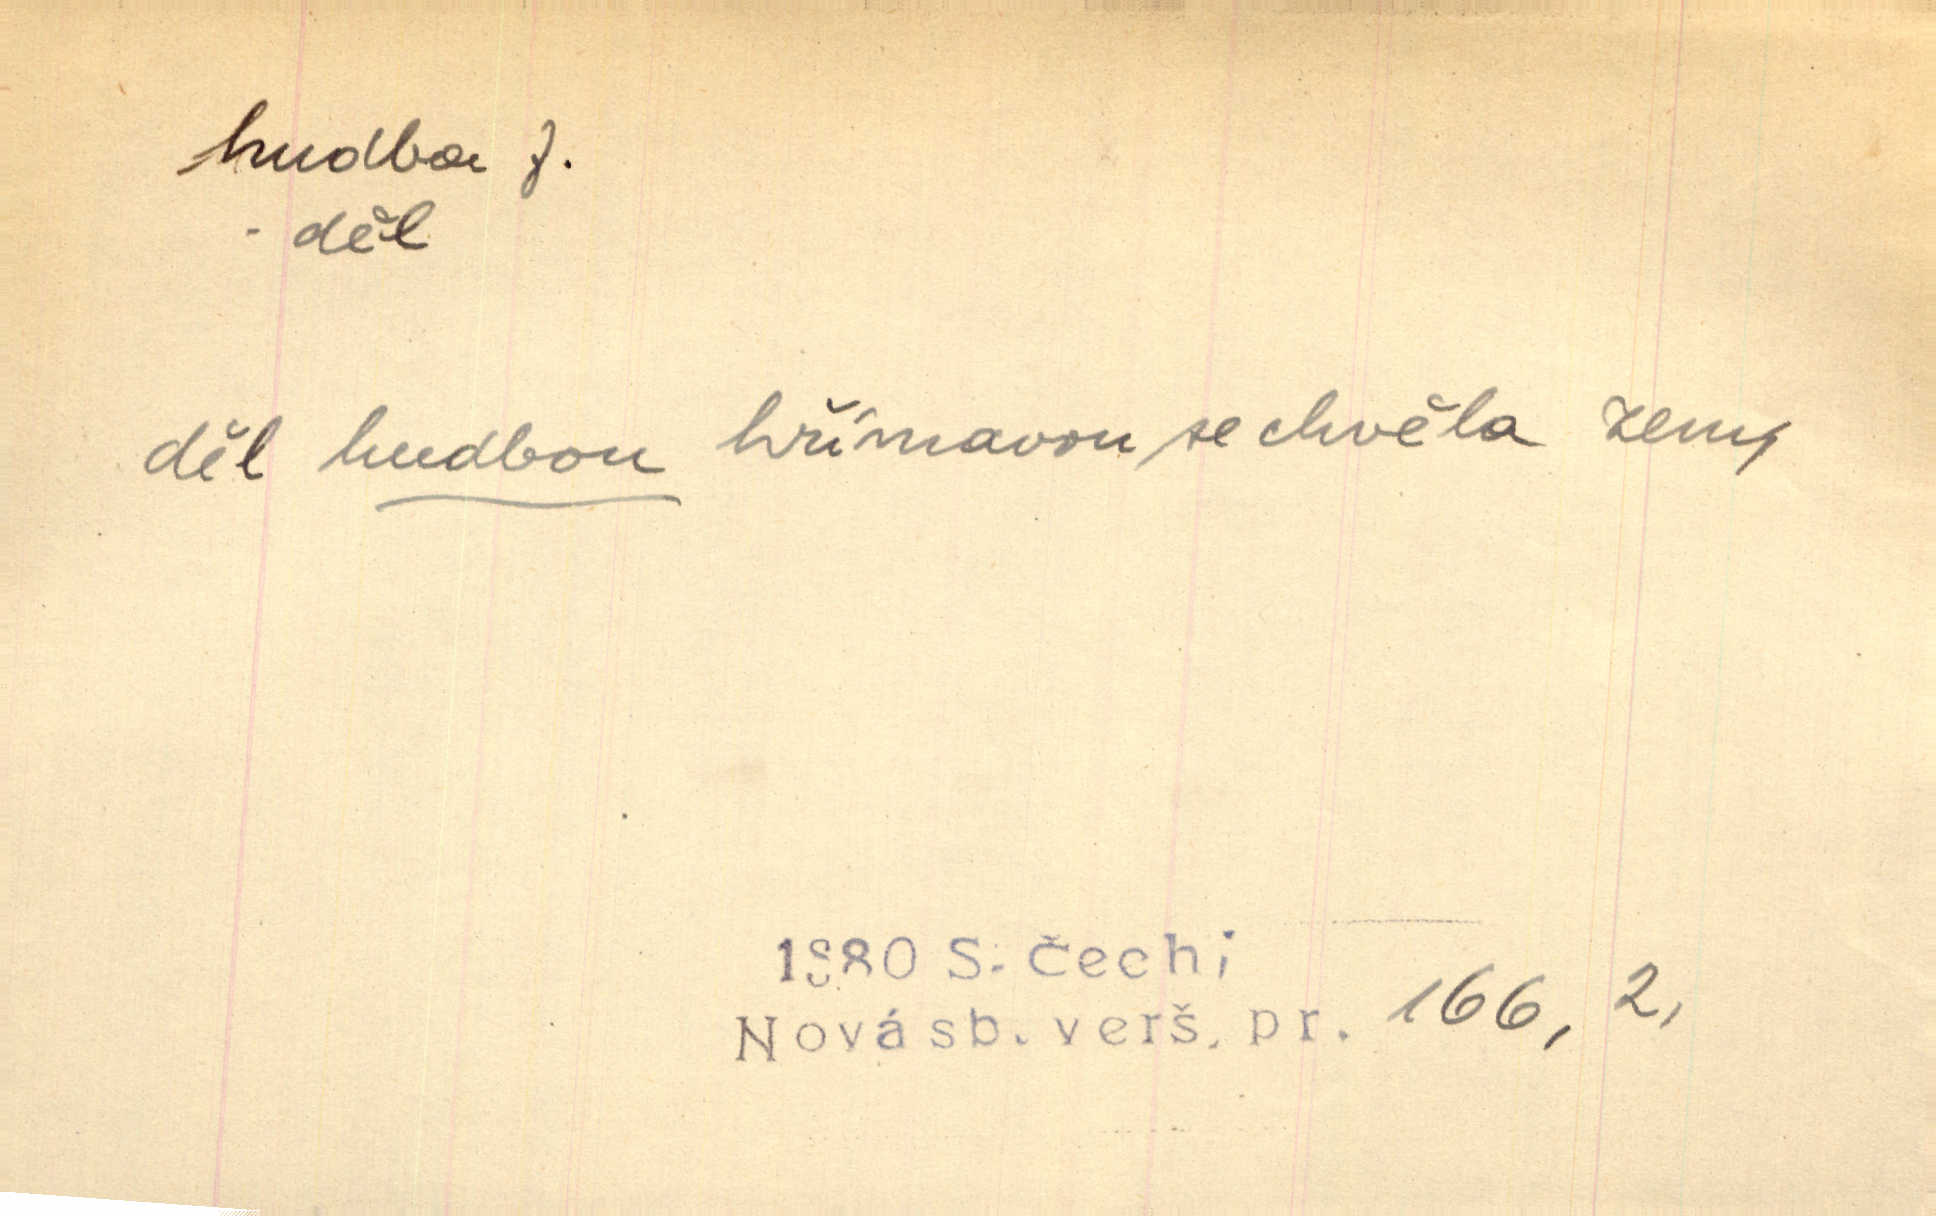 hudba f.
- děl
děl hudbou hřímavou se chvěla zem,
1880 S. Čech:
Nová sb. verš. pr. 166, 2,